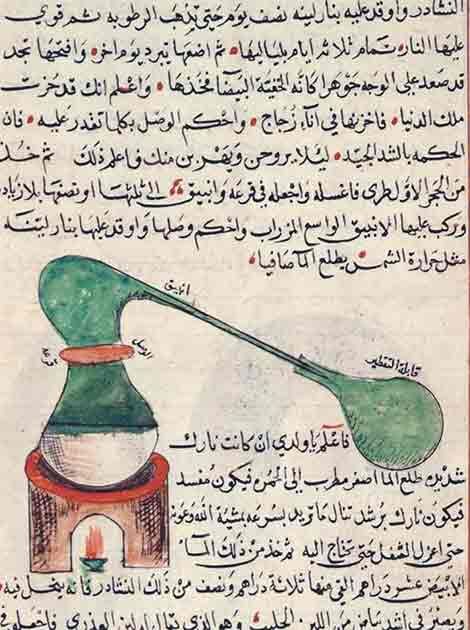 النشادر واوقد عليه بنار لينه نصف يوم حتى تذهب الرطوبه ثم قوي
عليها النار تمام ثلاثة ايام بلياليها ثم اضعها تبرد يوم اخر وافتحها تجد
قد صعد على الوجه جوهرا كانه البيضا فخذها واعلم انك قد حزت
ملك الدنيا فاخزنها في اناء زجاج واحكم الوصل بكلما تقدر عليه فان
الحكمه بالشد الجيد ليلا يروحن ويفرين منك فاعلم ذلك ثم خذ
من الحجر الاول طري فاغسله واجعله في قرعة وانبيق الى ثلثها او نصفها بلا زياده
وركب عليها الانبيق الواسع المزراب واحكم وصلها واوقد عليها بنار لينه
مثل حرارة الشمس يطلع الما صافيا
انبيق
الوصل
قابلة التقطير
فاعلم يا ولدي ان كانت نارك
شديده طلع الما اصفر مطرب الى الحمره فيكون مفسد
فيكون نارك برشد تنال ما تريد بسرعه بمشية الله وعونه
حتى اعزل الثفل حتى تحتاج اليه ثم خذ من ذلك الما
الابيض عشر دراهم التي منها ثلاثة دراهم ونصف من ذلك النشادر فانه ينحل فيه
ويصير في اشد بياض من اللبن الحليب وهو الذي يقال له لبن العذري فاجعله في